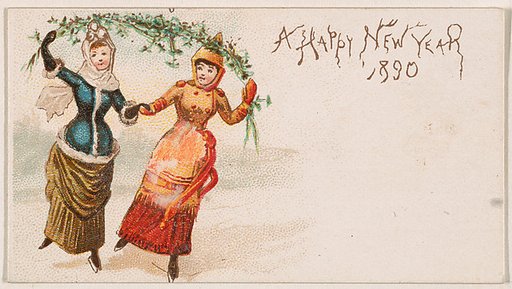 A Happy New Year
1890